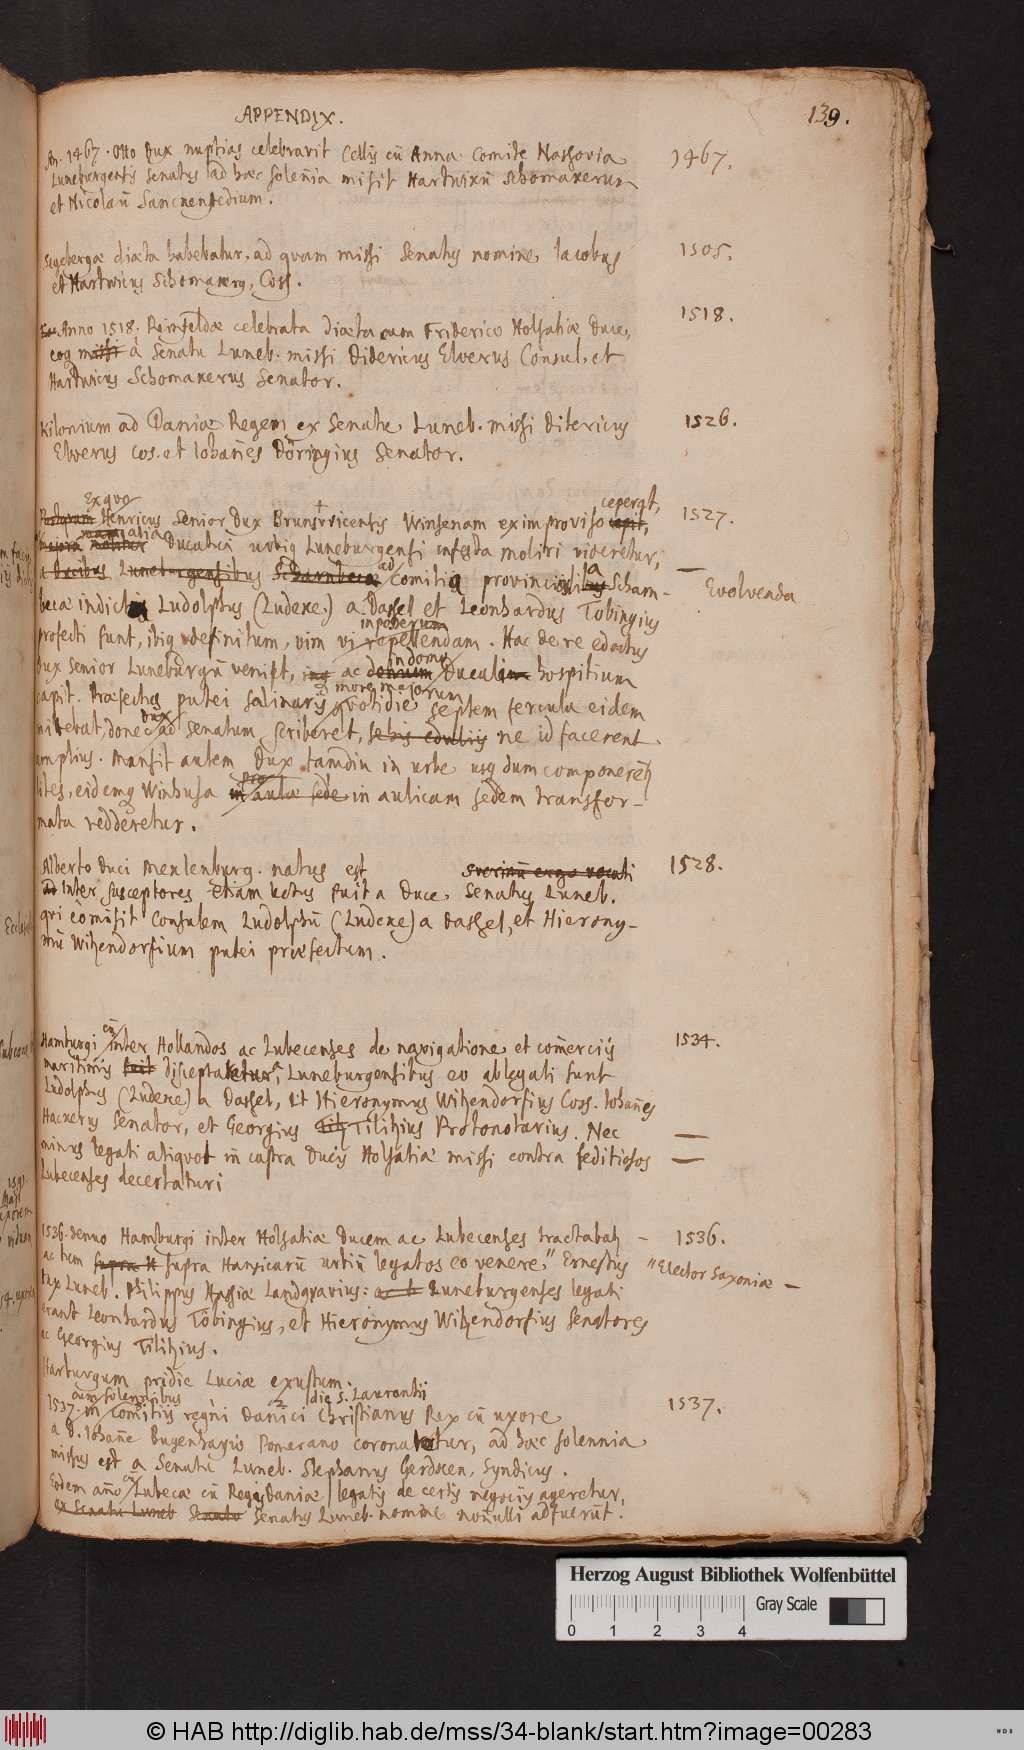 APPENDIX.
139.
An. 1467. Otto Dux nuptias celebravit Cellis cū Anna Comite Nassovia
1467.
Luneburgensis Senatus ad haec solenia misit Hartwixū Schomaxerum
et Nicolaū Sancnenstedium.
Segebergae diaeta habebatur, ad quam missi Senatus nomine, Iacobus
1505.
et Hartwicus Schomaxerus, Coss.
Anno 1518. Reinfeldae celebrata diaeta cum Friderico Holsatiae Duce,
1518.
eoq missi à Senatu Luneb. missi Didericus Elverus Consul, et
Hartwicus Schomaxerus Senator.
Kilonium ad Daniae Regem ex Senatu Luneb. missi Ditericus
1526.
Elverus cos. et Iohañes Döringius Senator.
Ex quo
ceperat,
Postquam Henricus Senior Dux Brunsvicensis Winsenam ex improviso cepit,
1527.
Ducatiā urbiq Luneburgensi infesta moliri videretur,
a Ducibus Luneburgensibus Scharnbecae ad Comitia provincialia Scharn-
Evolvenda
becae indicta Ludolphus (Ludexe) a Dassel et Leonhardus Töbingius
profecti sunt, ibiq definitum, vim vi repellendam. Hac de re edoctus
Dux Senior Luneburgū venist, ac in domo Ducali hospitium
capit. Praefectus putei salinaris quotidie more majorum septem fercula eidem
mittebat, donec Dux ad Senatum scriberet, ne id facerent
amplius. Mansit autem Dux tamdiu in urbe usq dum componerent
lites, eidemq Winhusa pro aulae sede in aulicam sedem transfor-
mata redderetur.
Alberto Duci Mexlenburg. natus est
1528.
ad inter susceptores etiam lectus fuit a Duce Senatus Luneb.
qui cōmisit Consulem Ludolphū (Ludexe) a Dassel, et Hierony-
mū Witzendorfium putei praefectum.
Hamburgi cū inter Hollandos ac Lubecenses de navigatione et comerciis
1534.
maritimis fuit disceptaretur, Luneburgensibus eo ablegati sunt
Ludolphus (Ludexe) a Dassel, et Hieronymus Witzendorfius Coss. Iohañes
Hacxerus Senator, et Georgius Tilitzius Protonotarius. Nec
minus legati aliquot in castra Ducis Holsatiae missi contra seditiosos
Lubecenses decertaturi
1536. denuo Hamburgi inter Holsatiae Ducem ac Lubecenses tractabatr
1536.
ac tum supra Hanxicarū urbiū legatos eo venere" Ernestus
" Elector Saxoniae
Dux Luneb. Philippus Hassiae Landgravius: ac Luneburgenses legati
erant Leonhardus Töbingius, et Hieronymus Witzendorfius Senatores
ac Georgius Tilitzius.
Harburgum pridie Luciae exustum.
cum solennibus
die S. Laurentii
1537. in Comitiis regni Danici Christianus Rex cū uxore
1537.
a D. Iohañe Bugenhagio Pomerano coronaretur, ad haec solennia
missus est a Senatu Luneb. Stephanus Gerdxen, Syndicus.
Eodem año cū Lubecae cū Regis Daniae legatis de certis negociis ageretur,
ex Senatu Luneb Senatu Senatus Luneb. nomine noñulli adfuerūt.
Herzog August Bibliothek Wolfenbüttel
Gray Scale
0 1 2 3 4
© HAB http://diglib.hab.de/mss/34-blank/start.htm?image=00283
WDB